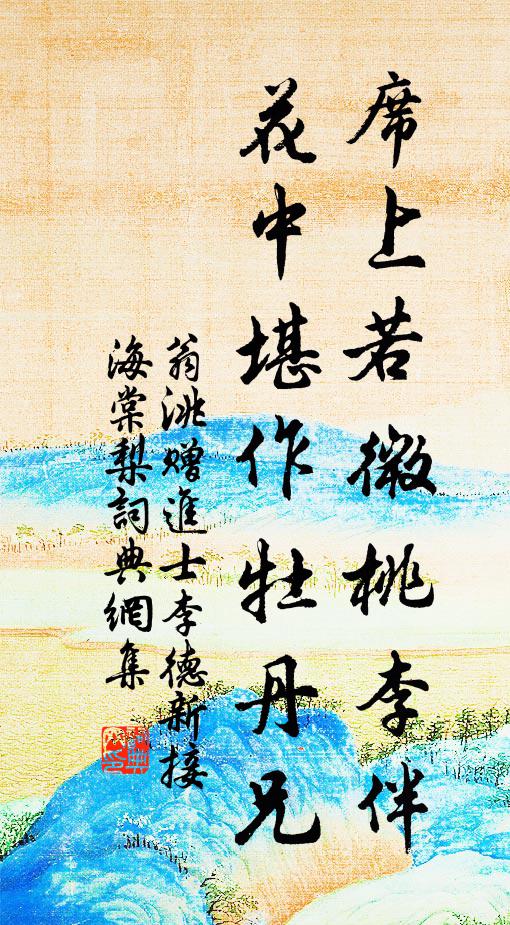 席上若微桃李伴
花中堪作牡丹兄
翁洮贈進士李德新接
海棠梨詞典網集